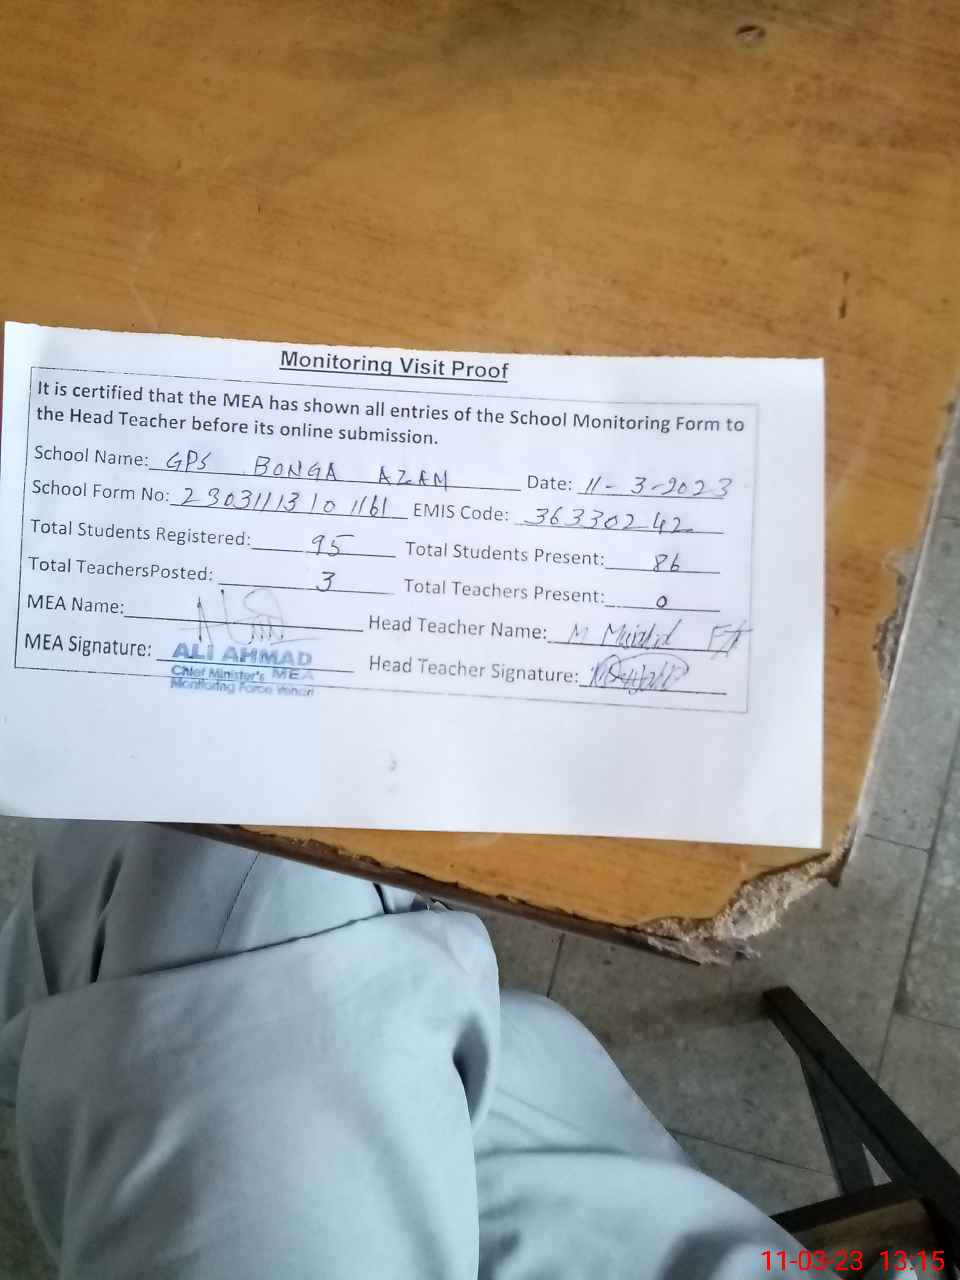 Monitoring Visit Proof
It is certified that the MEA has shown all entries of the School Monitoring Form to
the Head Teacher before its online submission.
School Name: GPS BONGA AZAM Date: 11-3-2023
School Form No: EMIS Code: 36330242
Total Students Registered: 95 Total Students Present: 86
Total TeachersPosted: 3 Total Teachers Present: 0
MEA Name: Head Teacher Name: M
MEA Signature: Head Teacher Signature:
ALI AHMAD
Chief Minister's MEA
Monitoring Force
11-03-23 13:15